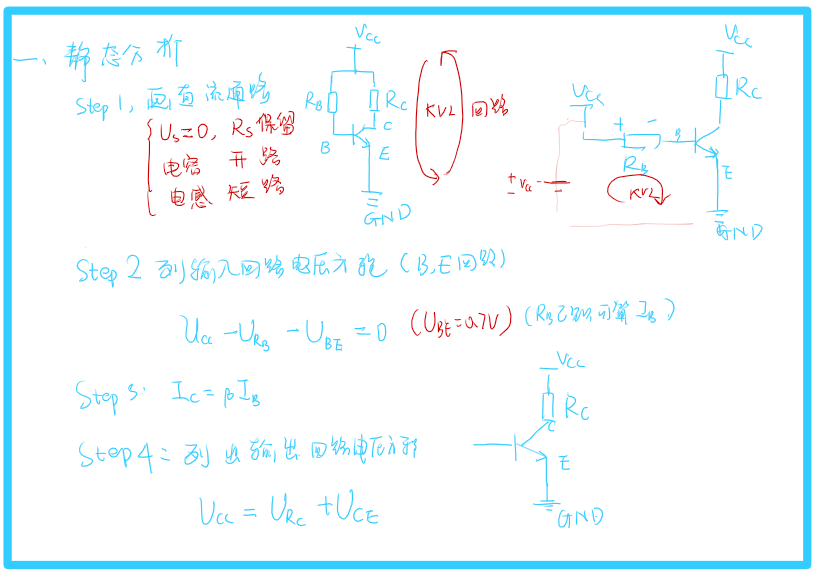 一、静态分析
Step 1, 画直流通路
Us=0, Rs保留
电容 开路
电感 短路
VCC
RB
RC
B
C
E
GND
KVL 回路
VCC
RC
VCC
+ -
RB
B
E
+ VCC -
KVL
GND
Step 2 列输入回路电压方程 (B,E回路)
UCC - URB - UBE = 0 (UBE=0.7V) (RB已知可算IB)
Step 3. IC = βIB
Step 4: 列出输出回路电压方程
UCC = URC + UCE
VCC
RC
C
E
GND